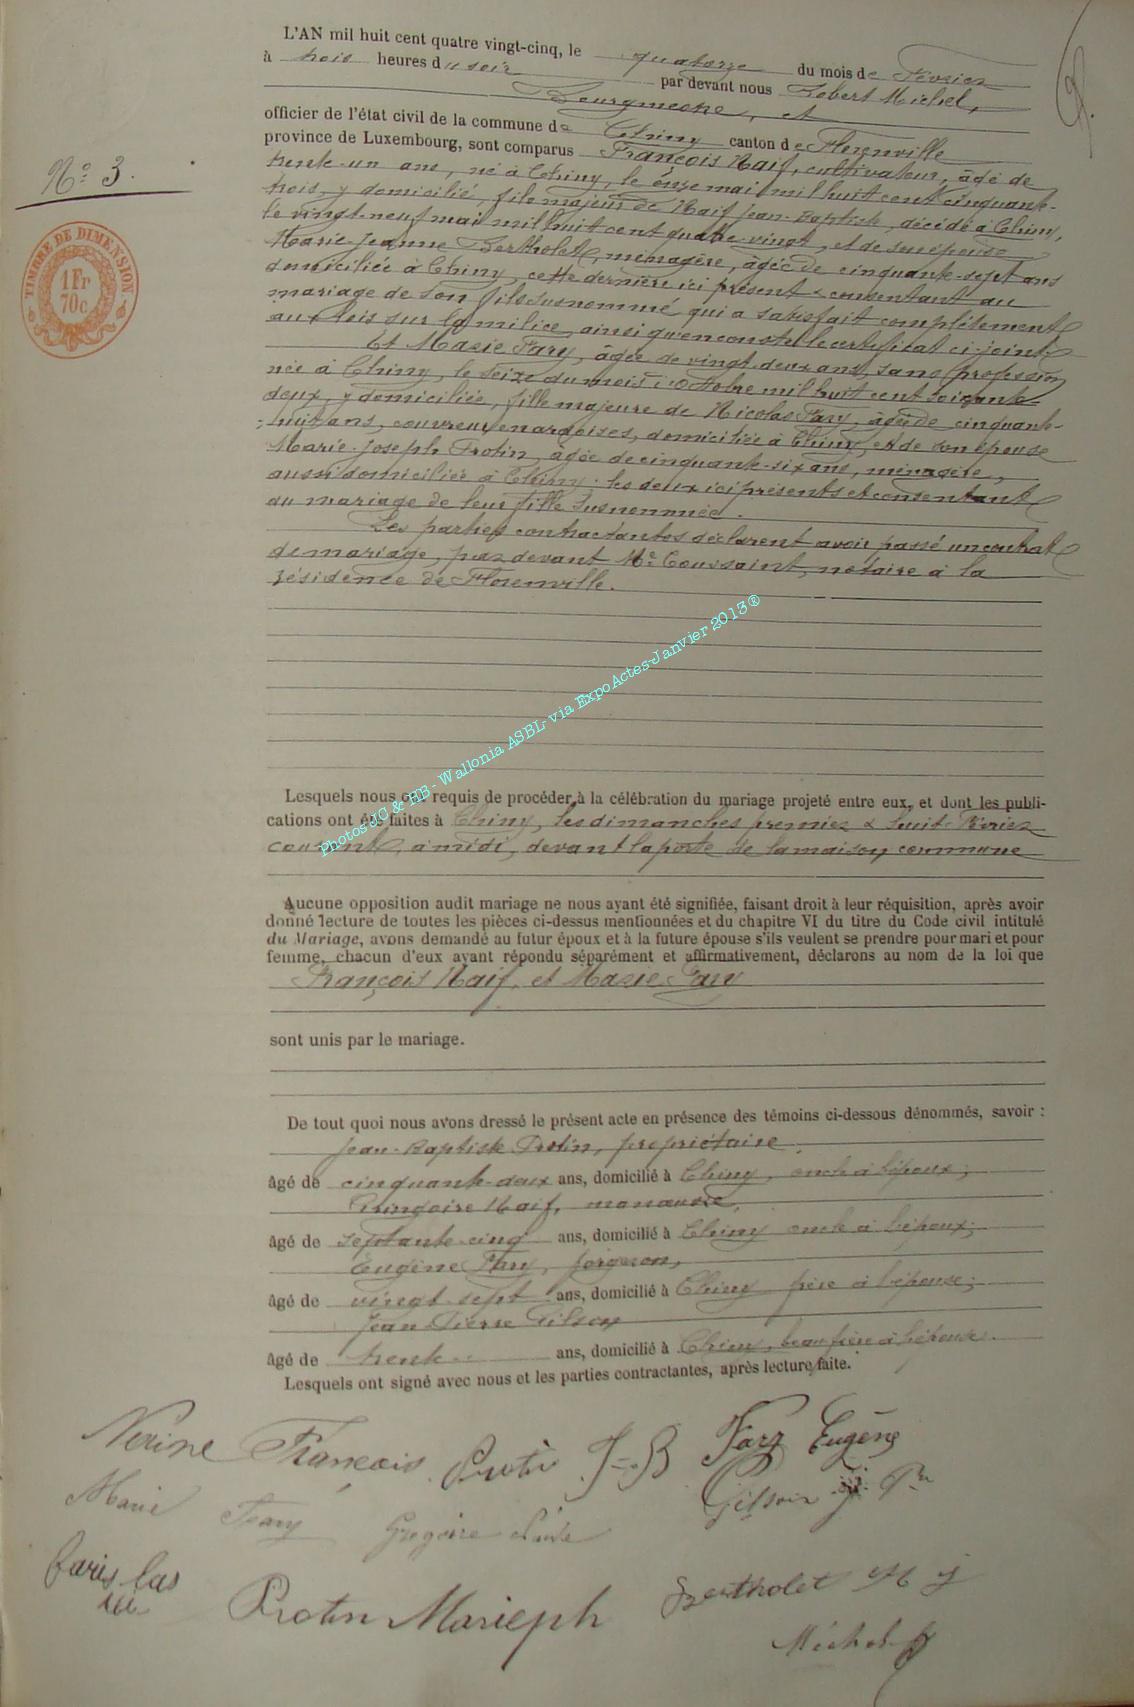 L'AN mil huit cent quatre vingt-cinq, le quatorze du mois de Février
à trois heures du soir par devant nous Robert Michel,
Bourgmestre, et
officier de l'état civil de la commune de Chiny canton de Florenville
province de Luxembourg, sont comparus François Naif, cultivateur, âgé de
N° 3.
trente-un ans, né à Chiny, le onze mai mil huit cent cinquante-
trois, y domicilié, fils majeur de Naif Jean-Baptiste, décédé à Chiny,
le vingt-neuf mai mil huit cent quatre-vingt, et de son épouse
Marie Jeanne Bertholet, ménagère, âgée de cinquante-sept ans
domiciliée à Chiny, cette dernière ici présent & consentant au
mariage de son fils susnommé qui a satisfait complètement
aux lois sur la milice, ainsi qu'en conste le certificat ci-joint;
TIMBRE DE DIMENSION
1 Fr
70c.
Et Marie Fary, âgée de vingt-deux ans, sans profession
née à Chiny, le seize du mois d'Octobre mil huit cent soixante
deux, y domiciliée, fille majeure de Nicolas Fary, âgé de cinquante-
huit ans, couvreur en ardoises, domicilié à Chiny, et de son épouse
Marie-Joseph Protin, âgée de cinquante-six ans, ménagère,
aussi domiciliée à Chiny. les deux ici présents et consentant
au mariage de leur fille susnommée.
Les parties contractantes déclarent avoir passé un contrat
de mariage, par devant Me Toussaint, notaire à la
résidence de Florenville.
Photos JC & HB - Wallonia ASBL- via ExpoActes-Janvier 2013®
Lesquels nous ont requis de procéder à la célébration du mariage projeté entre eux, et dont les publi-
cations ont été faites à Chiny, les dimanches premier & huit Février
courant, à midi, devant la porte de la maison commune
Aucune opposition audit mariage ne nous ayant été signifiée, faisant droit à leur réquisition, après avoir
donné lecture de toutes les pièces ci-dessus mentionnées et du chapitre VI du titre du Code civil intitulé
du Mariage, avons demandé au futur époux et à la future épouse s'ils veulent se prendre pour mari et pour
femme, chacun d'eux ayant répondu séparément et affirmativement, déclarons au nom de la loi que
François Naif, et Marie Fary
sont unis par le mariage.
De tout quoi nous avons dressé le présent acte en présence des témoins ci-dessous dénommés, savoir :
Jean-Baptiste Protin, propriétaire,
âgé de cinquante-deux ans, domicilié à Chiny, oncle à l'époux;
Naif, manœuvre,
âgé de septante-cinq ans, domicilié à Chiny oncle à l'époux;
Eugène Fary, forgeron,
âgé de vingt-sept ans, domicilié à Chiny frère à l'épouse;
Jean-Pierre Gilson
âgé de trente ans, domicilié à Chiny, beau-frère à l'épouse.
Lesquels ont signé avec nous et les parties contractantes, après lecture faite.
François Protin J-B Fary Eugène
Marie Feary Grégoire Gilson J. Pre
Protin Marieph Bertholet M J
Michel